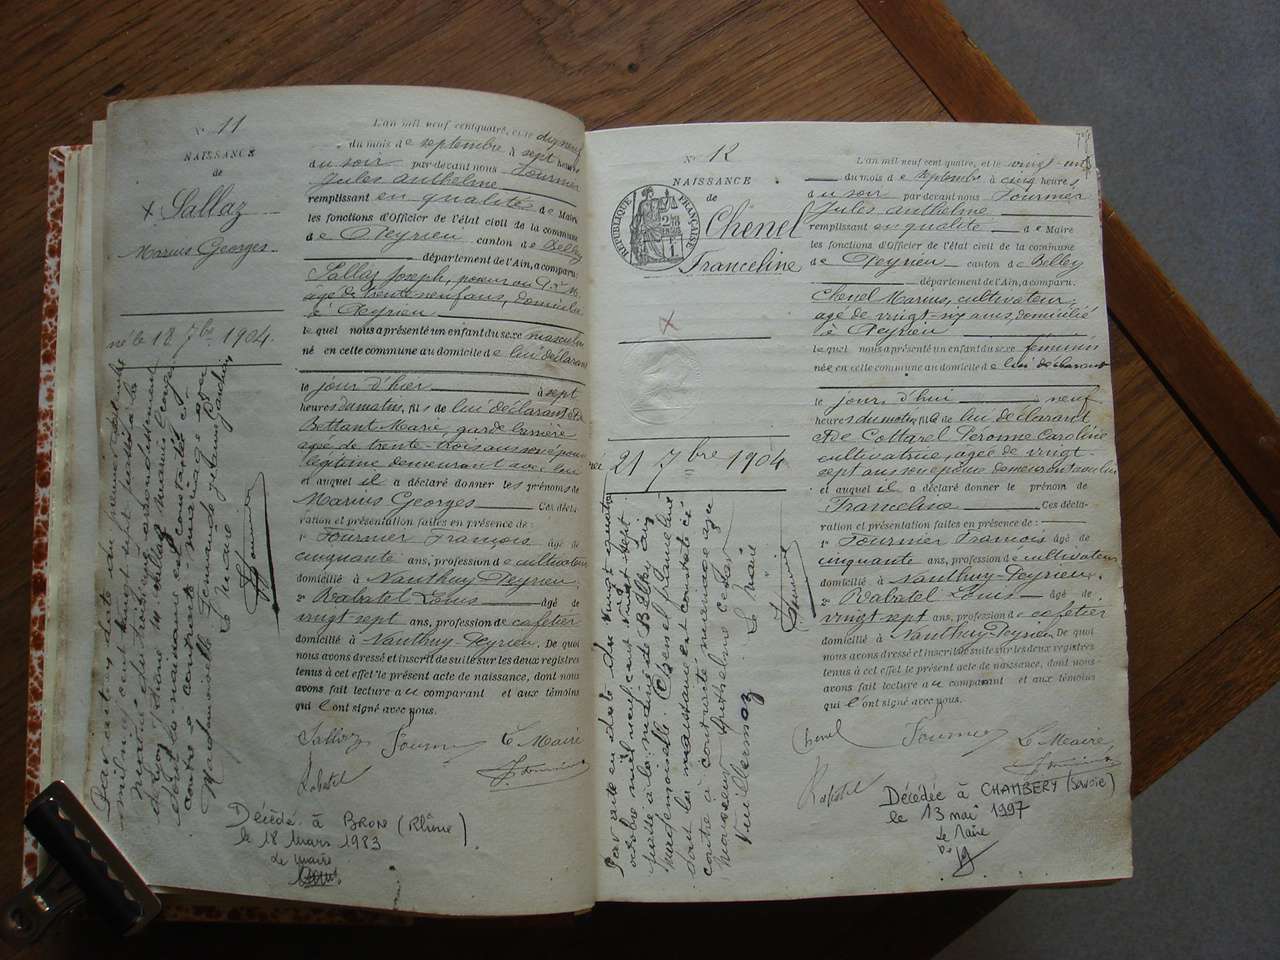 N° 11
NAISSANCE
de
x Sallaz
Marius Georges
né le 18 7bre 1904.
L'an mil neuf cent quatre, et le dix neuf
du mois de septembre à sept heures
du soir par devant nous Fournier
Jules Anthelme
remplissant en qualité de Maire
les fonctions d'Officier de l'état civil de la commune
de Peyrieu canton de Belley
département de l'Ain, a comparu:
Sallaz Joseph, poseur au
âgé de trente neuf ans, domicilié
à Peyrieu
lequel nous a présenté un enfant du sexe masculin
né en cette commune au domicile de lui déclarant
le jour d'hier à sept
heures du matin, fils de lui déclarant et de
Bettant Marie, garde barrière
âgée de trente-trois ans son épouse
légitime demeurant avec lui
et auquel il a déclaré donner les prénoms de
Marius Georges Ces décla-
ration et présentation faites en présence de:
1° Fournier François âgé de
cinquante ans, profession de cultivateur
domicilié à Nanthuy-Peyrieu,
2° Rabatel Louis âgé de
vingt sept ans, profession de cafetier
domicilié à Nanthuy-Peyrieu. De quoi
nous avons dressé et inscrit de suite sur les deux registres
tenus à cet effet le présent acte de naissance, dont nous
avons fait lecture au comparant et aux témoins
qui l'ont signé avec nous.
Sallaz Fournier Le Maire
Rabatel Fournier
Par acte en date du premier
mil neuf cent vingt sept passé à la
mairie du troisième arrondissement
de Lyon Sallaz Marius Georges
dont la naissance est constatée ci
contre a contracté mariage avec
Mademoiselle Fernande Jeanne
Le Maire
Décédé à BRON (Rhône)
le 18 Mars 1983
Le Maire
N° 12
NAISSANCE
de
Chenel
Franceline
RÉPUBLIQUE FRANÇAISE
x
née 21 7bre 1904
L'an mil neuf cent quatre, et le vingt-un
du mois de septembre à cinq heures
du soir par devant nous Fournier
Jules Anthelme
remplissant en qualité de Maire
les fonctions d'Officier de l'état civil de la commune
de Peyrieu canton de Belley
département de l'Ain, a comparu:
Chenel Marius, cultivateur,
âgé de vingt-six ans, domicilié
à Peyrieu
lequel nous a présenté un enfant du sexe féminin
née en cette commune au domicile de lui déclarant
le jour d'hui neuf
heures du matin, fille de lui déclarant
et de Cottarel Péronne Caroline
cultivatrice, âgée de vingt-
sept ans son épouse demeurant avec lui
et auquel il a déclaré donner le prénom de
Franceline Ces décla-
ration et présentation faites en présence de:
1° Fournier François âgé de
cinquante ans, profession de cultivateur
domicilié à Nanthuy-Peyrieu,
2° Rabatel Louis âgé de
vingt sept ans, profession de cafetier
domicilié à Nanthuy-Peyrieu. De quoi
nous avons dressé et inscrit de suite sur les deux registres
tenus à cet effet le présent acte de naissance, dont nous
avons fait lecture au comparant et aux témoins
qui l'ont signé avec nous.
Chenel Fournier Le Maire
Rabatel Fournier
Par acte en date du vingt quatre
octobre mil neuf cent vingt sept
passé à la mairie de Belley Ain
mademoiselle Chenel Franceline
dont la naissance est constatée ci
contre a contracté mariage avec
monsieur Anthelme
Vuillermoz
Le Maire
Décédée à CHAMBERY (Savoie)
le 13 mai 1997
Le Maire